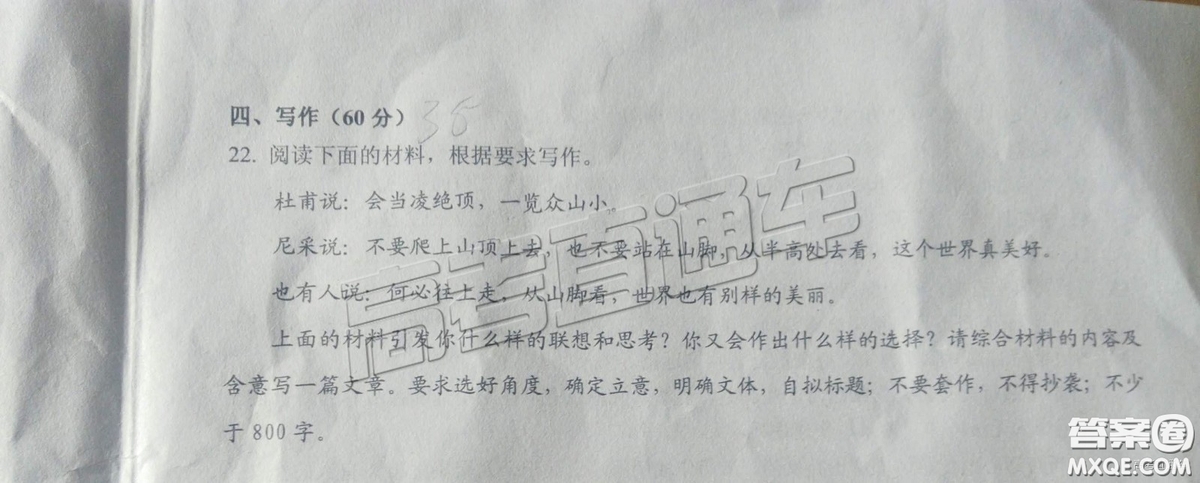 四、写作（60 分）36
22. 阅读下面的材料，根据要求写作。
杜甫说：会当凌绝顶，一览众山小。
尼采说：不要爬上山顶上去，也不要站在山脚，从半高处去看，这个世界真美好。
也有人说：何必往上走，从山脚看，世界也有别样的美丽。
上面的材料引发你什么样的联想和思考？你又会作出什么样的选择？请综合材料的内容及
含意写一篇文章。要求选好角度，确定立意，明确文体，自拟标题；不要套作，不得抄袭；不少
于 800 字。
高考直通车
答案圈
MXQE.COM